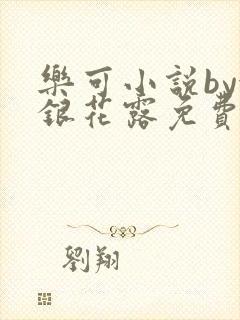 樂可小説by
銀花露免費
劉翔